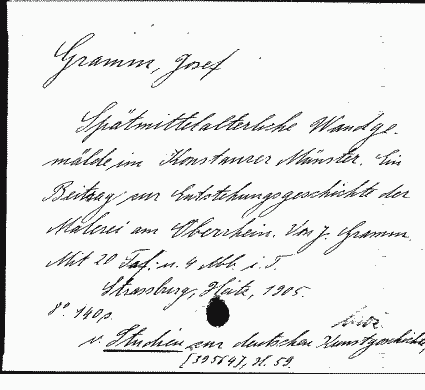 Gramm, Josef
Spätmittelalterliche Wandge-
mälde im Konstanzer Münster. Ein
Beitrag zur Entstehungsgeschichte der
Malerei am Oberrhein. Von J. Gramm.
Mit 20 Taf. u. 4 Abb. i. T.
Strassburg, Heitz, 1905.
8° 140 S.
v. Studien zur deutschen Kunstgeschichte,
[39564], H. 59.